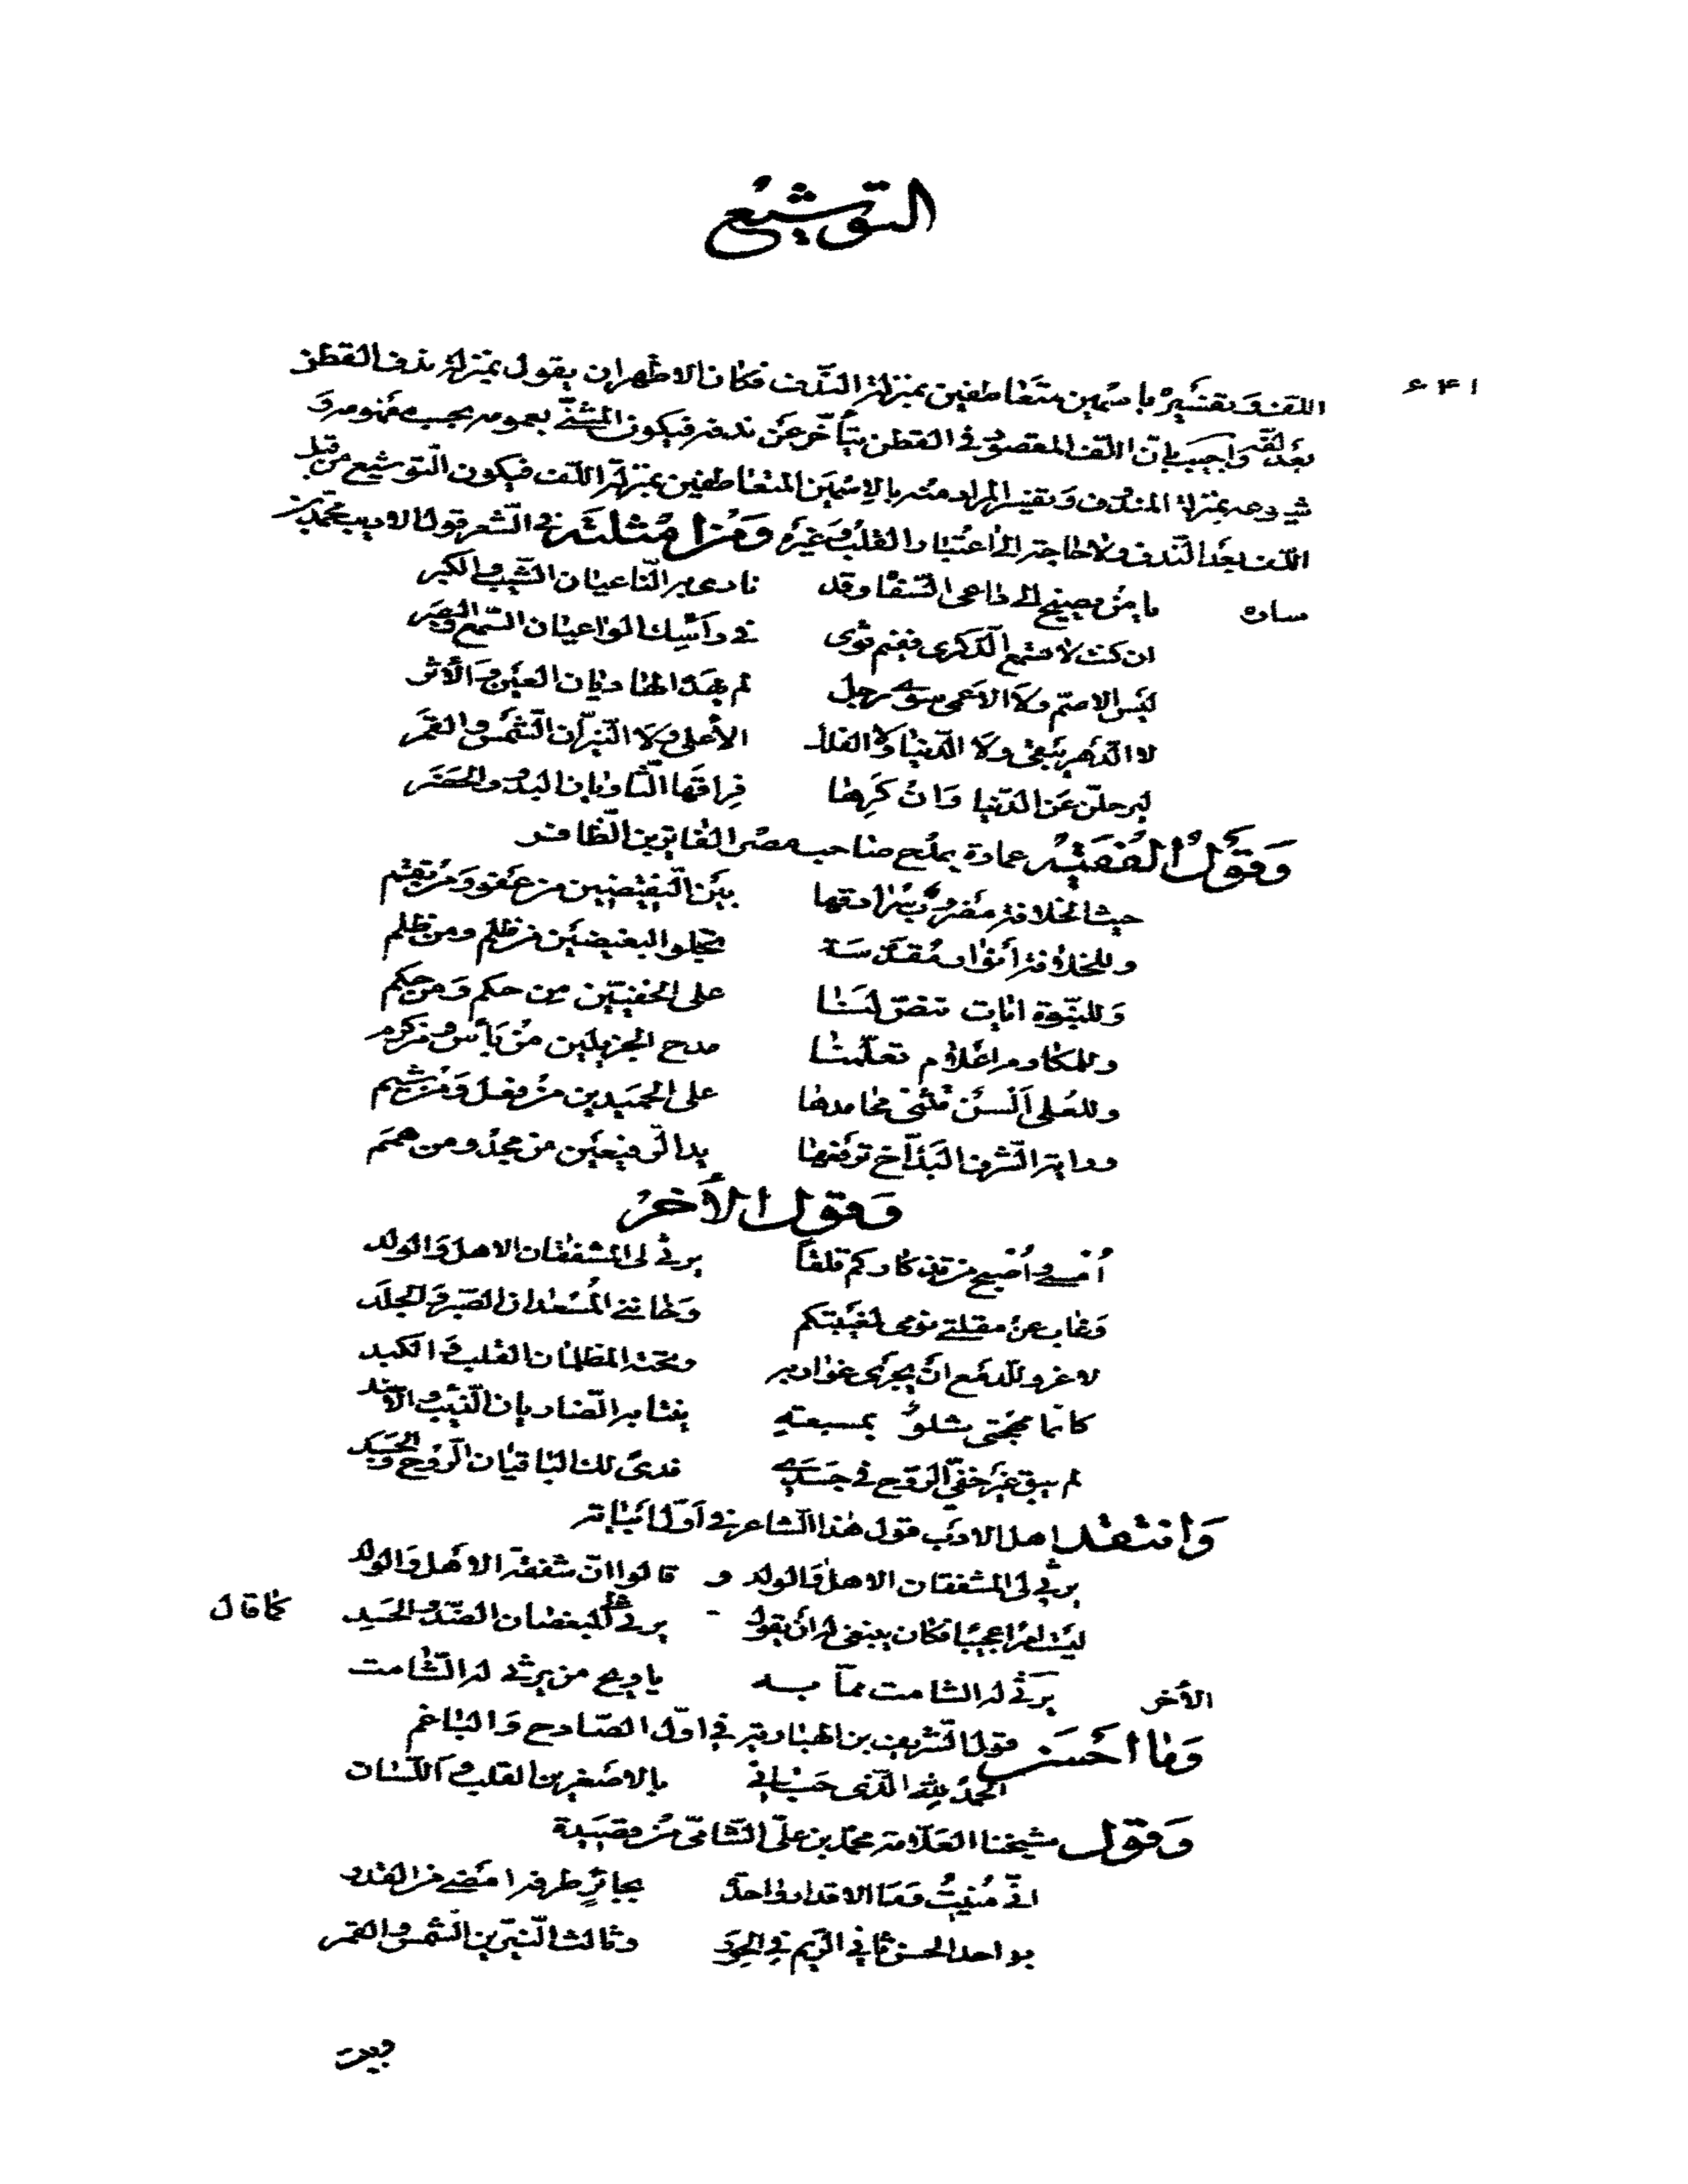 التوشيع
٦٤١
اللف وتفسيره باسمين متعاطفين بمنزلة الندف فكان الاظهر ان يقول بمنزلة ندف القطن
بعد لفه واجيب بان اللف المقصود في القطن يتأخر عن ندفه فيكون المثنى بعمومه بحسب مفهومه و
شيوعه بمنزلة المندف وتفسير المراد منه بالاسمين المتعاطفين بمنزلة اللف فيكون التوشيع من قبل
اللف بعد الندف ولا حاجة الى اعتبار القلب وغيره ومن امثلته في الشعر قول الاديب محمد بن
سارة يا من يصيخ الى داعي الشقا وقد نادى به الناعيان الشيب والكبر
ان كنت لا تسمع الذكرى ففيم ثوى في رأسك الواعيان السمع والبصر
ليس الاصم ولا الاعمى سوى رجل لم يهده الهاديان العين والأثر
لا الدهر يبقى ولا الدنيا ولا الفلك الأعلى ولا النيران الشمس والقمر
ليرحلن عن الدنيا وان كرها فراقها الثاويان البدو والحضر
وقول الفقيه عمارة يمدح صاحب مصر الفائز بن الظافر
حيث الخلافة مضروب سرادقها بين النقيضين من عفو ومن نقم
وللخلافة أنوار مقدسة تجلو البغيضين من ظلم ومن ظلم
وللنبوة ايات تنص لنا على الخفيين من حكم ومن حكم
وللمكارم اعلام تعلمنا مدح الجزيلين من بأس ومن كرم
وللعلى ألسن تثني محامدها على الحميدين من فعل ومن شيم
وراية الشرف البذاخ ترفعها يد الرفيعين من مجد ومن همم
وقول الأخر
أمسي وأصبح من تذكاركم قلقا يرثي لي المشفقان الاهل والولد
وغاب عن مقلتي نومي لغيبتكم وخانني المسعدان الصبر والجلد
لا غرو للدمع ان يجري غواربه وتحته المظلمان القلب والكبد
كانما مهجتي شلو بمسبعة ينتابه الضاريان الذئب والاسد
لم يبق غير خفي الروح في جسدي فدى لك الباقيان الروح والجسد
وانتقد اهل الادب قول هذا الشاعر في أول أبياته
يرثي لي المشفقان الاهل والولد و قالوا ان شفقة الاهل والولد
ليست امرا عجيبا فكان ينبغي له ان يقول يرثي لي المبغضان الضد والحسد كما قال
الأخر يرثي له الشامت مما به يا ويح من يرثي له الشامت
وما احسن قول الشريف بن الهبارية في اول الصادح والباغم
الحمد لله الذي حباني بالاصغرين القلب واللسان
وقول شيخنا العلامة محمد بن علي الشامي من قصيدة
اني منيت وما الاقدار واحدة بجائر طرفه امضى من القدر
بواحد الحسن ثاني الريم في الحور وثالث النيرين الشمس والقمر
وبيت